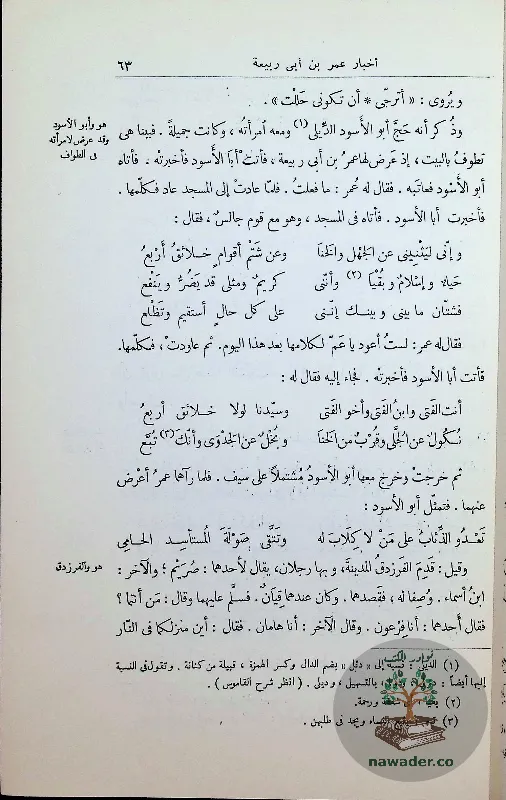 أخبار عمر بن أبى ربيعة ٦٣
ويُروى : « أترجّى * أن تكونى حَلَلْت » .
هو وأبو الأسود وقد عرض لامرأته فى الطواف
وذُكر أنه حَجَّ أبو الأسود الدِّيلى (١) ومعه امرأتُه ، وكانت جميلةً . فبينا هى
تطوفُ بالبيت ، إذ عَرَض لها عمرُ بن أبى ربيعة ، فأتتْ أبا الأسود فأخبرتْه . فأتاه
أبو الأسْود فعاتَبه . فقال له عُمر : ما فعلتُ . فلمّا عادتْ إلى المسجد عاد فكلّمها .
فأخبرت أبا الأسود . فأتاه فى المسجد ، وهو مع قوم جالسٌ ، فقال :
وإنّى ليَثْنِينى عن الجَهْل والخنَا وعن شَتْم أقوامٍ خلائقُ أربعُ
حياءٌ وإسْلامٌ وبُقْيَا (٢) وأنّنى كريمٌ ومثلى قد يَضُرُّ ويَنْفع
فشتّان ما بينى وبينك إنّنى على كل حالٍ أستقيم وتَظْلَع
فقال له عمر : لستُ أعود يا عَمّ لكلامها بعد هذا اليوم . ثم عاودتْ ، فكلّمها .
فأتت أبا الأسود فأخبرتْه . فجاء إليه فقال له :
أنت الفَتى وابنُ الفَتى وأخو الفَتى وسيّدنا لولا خلائق أربعُ
نُكولٌ عن الجُلَّى وقُرْبٌ من الخَنا وبُخْلٌ عن الجَدْوَى وأنّك (٣) تُبَّع
ثم خرجتْ وخرج معها أبو الأسودُ مُشتملاً على سيف . فلما رآهما عمرُ أعْرض
عنهما . فتمثّل أبو الأسود :
تَعْدُو الذِّئابُ على مَنْ لا كِلابَ له وتَتَّقى صَوْلَةَ المُستأسِد الحامِى
هو والفرزدق
وقيل : قَدِمَ الفَرزدقُ المدينةَ ، وبها رجلان، يقال لأحدهما : صُرَيْم ؛ والآخر :
ابنُ أسماء . وُصِفا له ، فقصدهما . وكان عندهما قِيَانٌ . فسلّم عليهما وقال : مَن أنتما ؟
فقال أحدهما : أنا فِرْعون . وقال الآخر : أنا هامان . فقال : أين منزلكما فى النّار
(١) الديلى : نسبة إلى « دئل » بضم الدال وكسر الهمزة ، قبيلة من كنانة . وتقول فى النسبة
إليها أيضاً : بالتسهيل ، وديلى . ( انظر شرح القاموس ) .
(٢) ورحمة.
(٣) ويجد فى طلبهن .
نوادر الكتب
nawader.co